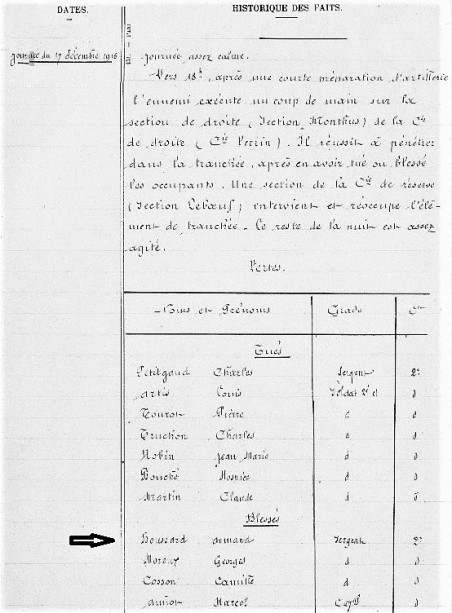 DATES.
HISTORIQUE DES FAITS.
Journée du 17 décembre 1916
Journée assez calme.
Vers 18h, après une courte préparation d'artillerie
l'ennemi exécute un coup de main sur la
section de droite (Section Monthus) de la Cie
de droite (Cie Perrin). Il réussit à pénétrer
dans la tranchée, après en avoir tué ou blessé
les occupants. Une section de la Cie de réserve
(Section Lebœuf) intervient et réoccupe l'élé-
ment de tranchée. Le reste de la nuit est assez
agité.
Pertes.
Noms et Prénoms Grade Cie
Tués
Petitgand Charles Sergent 2e
Artis Louis Soldat 2e cl d
Touron Pierre d d
Truction Charles d d
Robin Jean Marie d d
Bouché d d
Martin Claude d d
Blessés
Boussard Armand Sergent 2e
Moreux Georges d d
Cosson Camille d d
Amiot Marcel Capal d